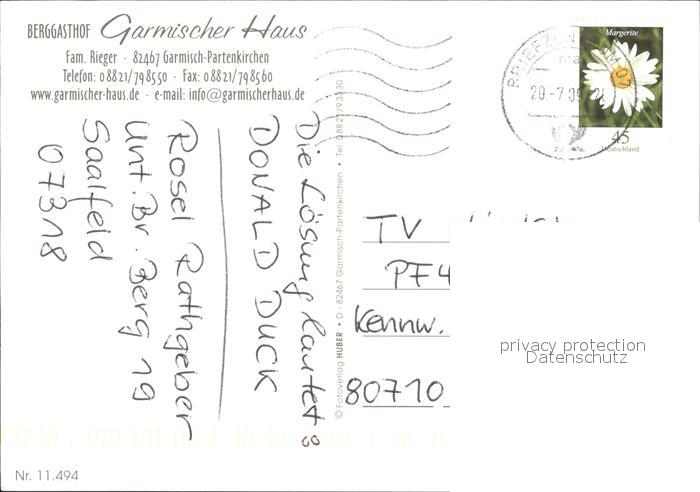 BERGGASTHOF Garmischer Haus
Fam. Rieger · 82467 Garmisch-Partenkirchen
Telefon: 08821/798550 · Fax: 08821/798560
www.garmischer-haus.de · e-mail: info@garmischerhaus.de
Die Lösung lautet:
DONALD DUCK
Rosel Rathgeber
Unt. Br. Berg 19
Saalfeld
07318
© Fotoverlag HUBER · D - 82467 Garmisch-Partenkirchen · Tel. 08821/
BRIEFZEN
20.-7.09
Margerite
45
Deutschland
TV
PF 4
Kennw.
80710
privacy protection
Datenschutz
Nr. 11.494